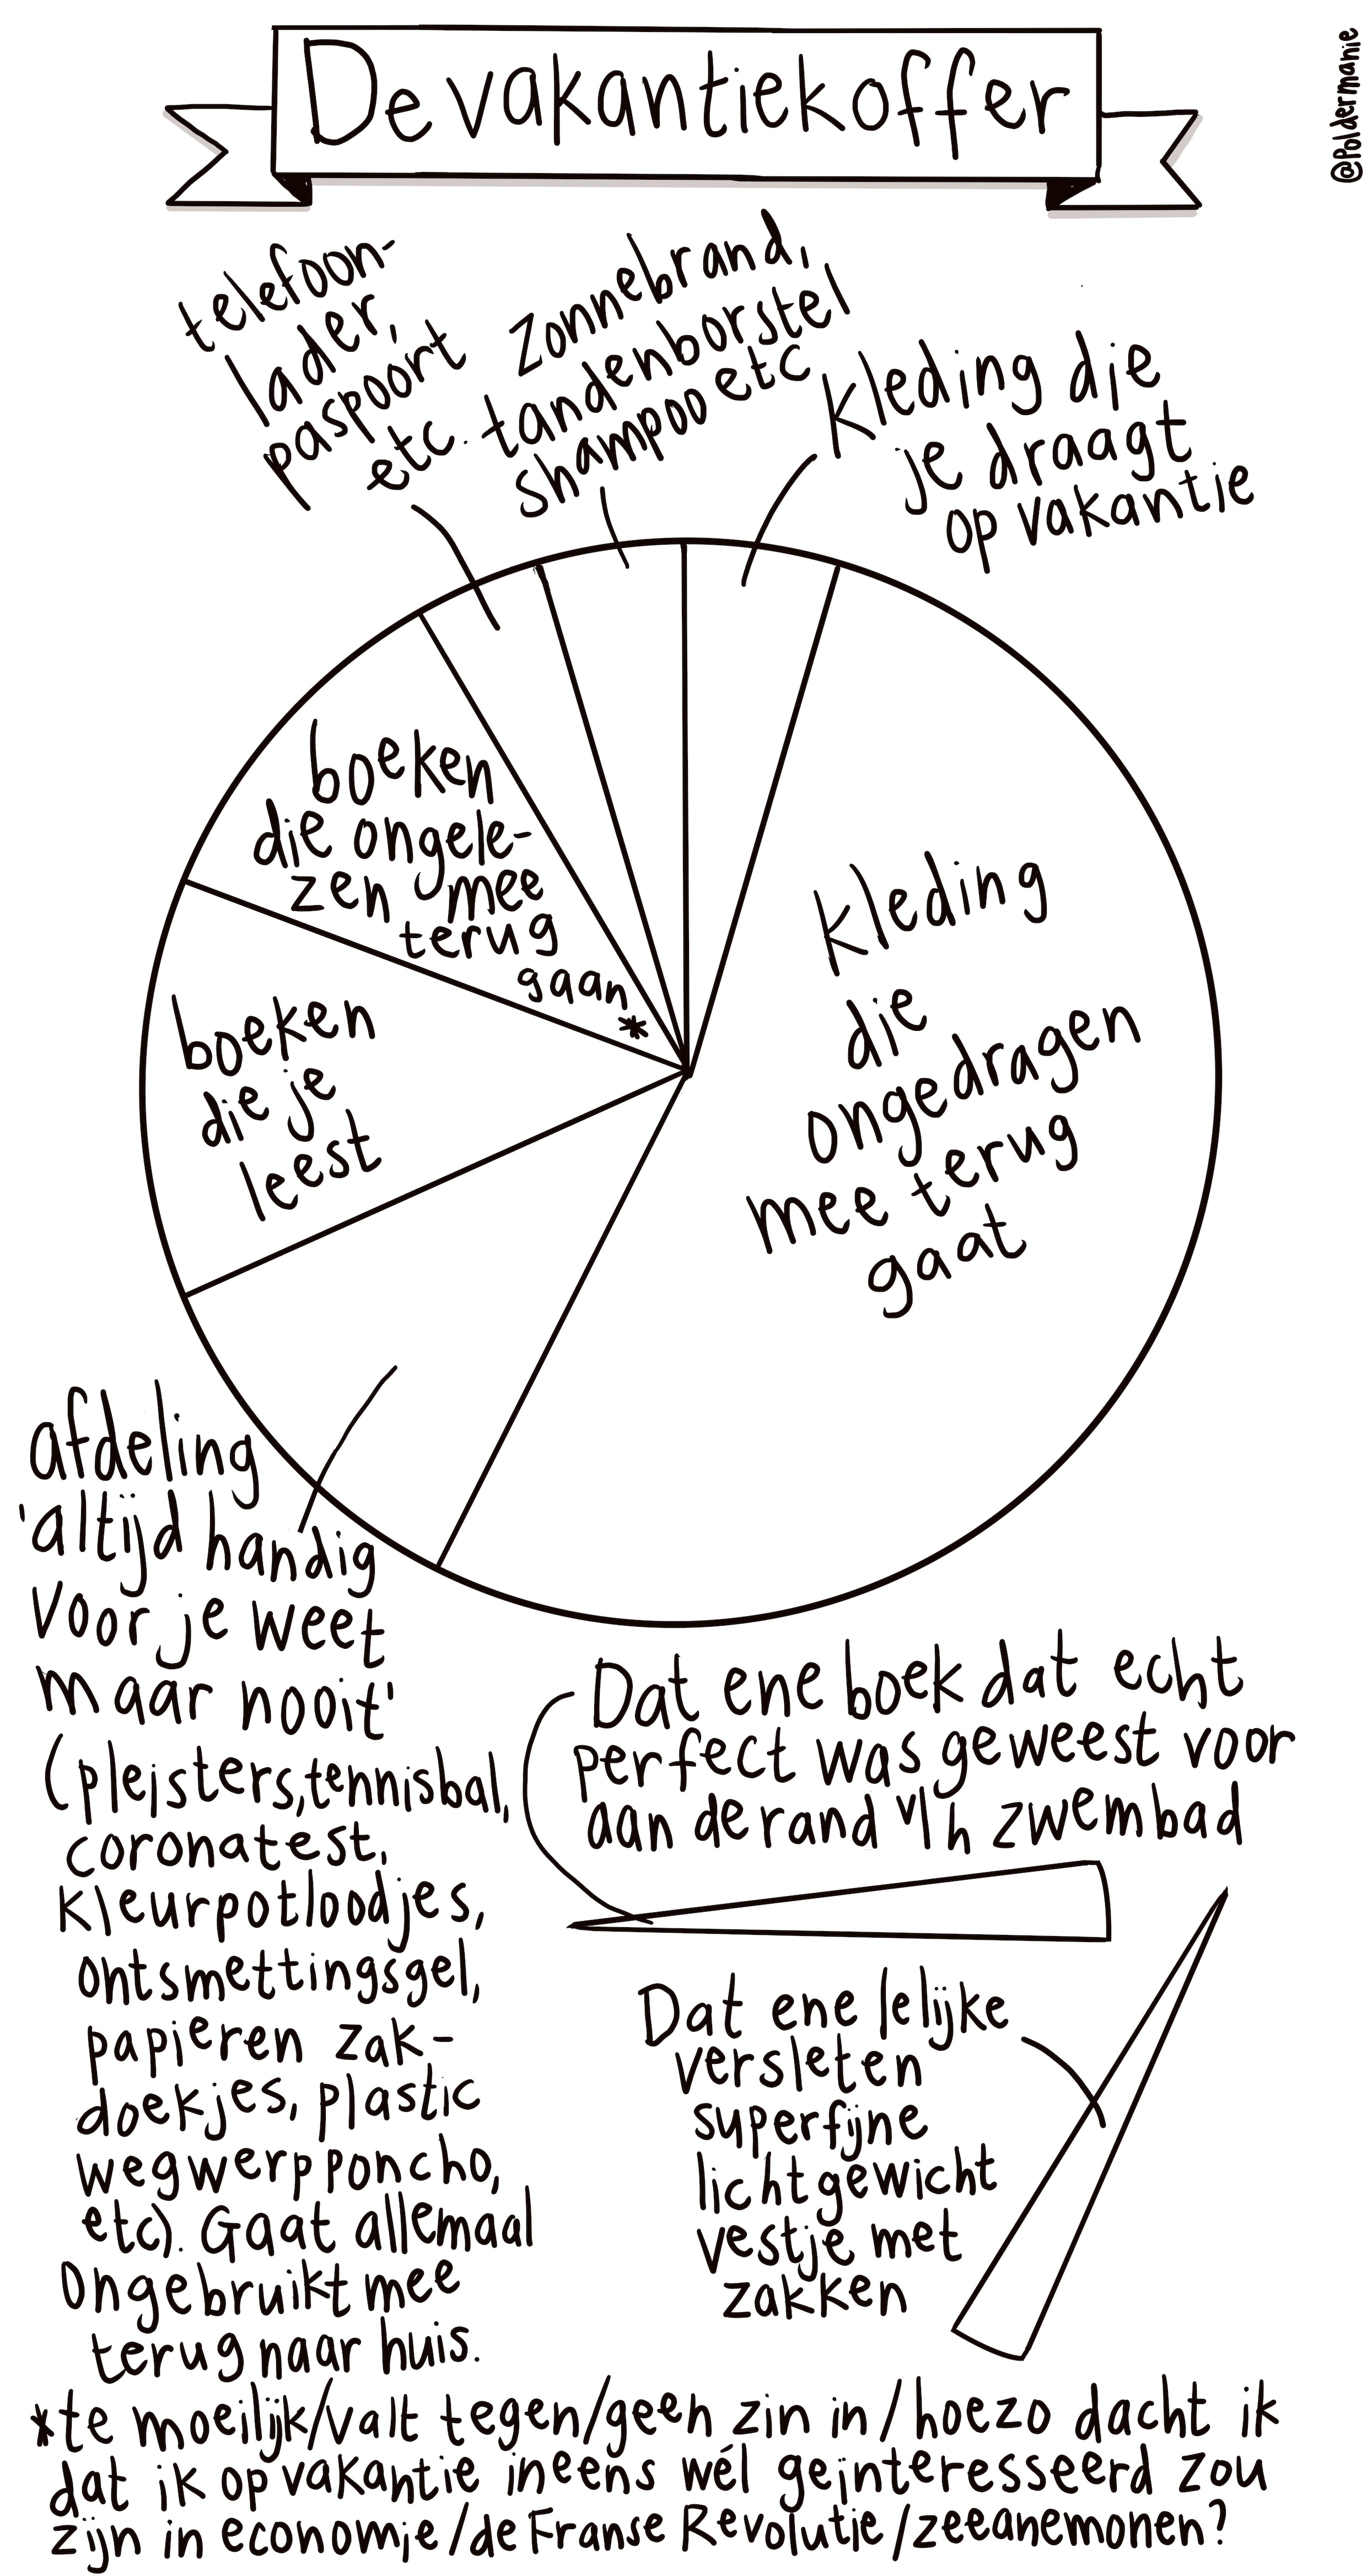 De vakantiekoffer
@Poldermanie
telefoon-
lader,
paspoort
etc.
zonnebrand,
tandenborstel
shampoo etc
kleding die
je draagt
op vakantie
boeken
die ongele-
zen mee
terug
gaan
*
boeken
die je
leest
kleding
die
ongedragen
mee terug
gaat
afdeling
'altijd handig
voor je weet
maar nooit'
(pleisters, tennisbal,
coronatest,
kleurpotloodjes,
ontsmettingsgel,
papieren zak-
doekjes, plastic
wegwerpponcho,
etc). Gaat allemaal
ongebruikt mee
terug naar huis.
Dat ene boek dat echt
perfect was geweest voor
aan de rand v/h zwembad
Dat ene lelijke
versleten
superfijne
lichtgewicht
vestje met
zakken
*te moeilijk/valt tegen/geen zin in/hoezo dacht ik
dat ik op vakantie ineens wél geinteresseerd zou
zijn in economie/de Franse Revolutie/zeeanemonen?